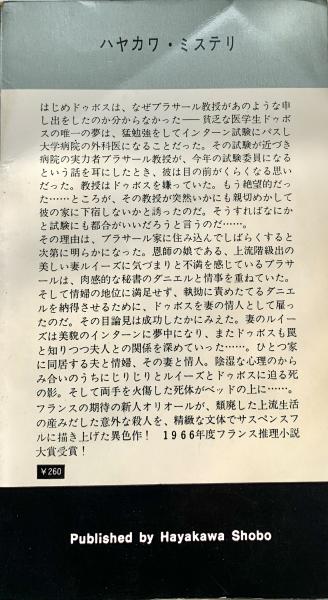 ハヤカワ・ミステリ
はじめドゥボスは、なぜブラサール教授があのような申
し出をしたのか分からなかった——貧乏な医学生ドゥボ
スの唯一の夢は、猛勉強をしてインターン試験にパスし
大学病院の外科医になることだった。その試験が近づき
病院の実力者ブラサール教授が、今年の試験委員になる
という話を耳にしたとき、彼は目の前がくらくなる思い
だった。教授はドゥボスを嫌っていた。もう絶望的だっ
た……ところが、その教授が突然いかにも親切めかして
彼の家に下宿しないかと誘ったのだ。そうすればなにか
と試験にも都合がいいだろうと言うのだ……。
その理由は、ブラサール家に住み込んでしばらくすると
次第に明らかになった。恩師の娘である、上流階級出の
美しい妻ルイーズに気づまりと不満を感じているブラサ
ールは、肉感的な秘書のダニエルと情事を重ねていた。
そして情婦の地位に満足せず、執拗に責めたてるダニエ
ルを納得させるために、ドゥボスを妻の情人として雇っ
たのだ。その目論見は成功したかにみえた。妻のルイー
ズは美貌のインターンに夢中になり、またドゥボスも罠
と知りつつ夫人との関係を深めていった……。ひとつ家
に同居する夫と情婦、その妻と情人。陰湿な心理のから
み合いのうちにじりじりとルイーズとドゥボスに迫る死
の影。そして両手を火傷した死体がベッドの上に……。
フランスの期待の新人オリオールが、頽廃した上流生活
の産みだした意外な殺人を、精緻な文体でサスペンスフ
ルに描き上げた異色作！ 1966年度フランス推理小説
大賞受賞！
¥260
Published by Hayakawa Shobo